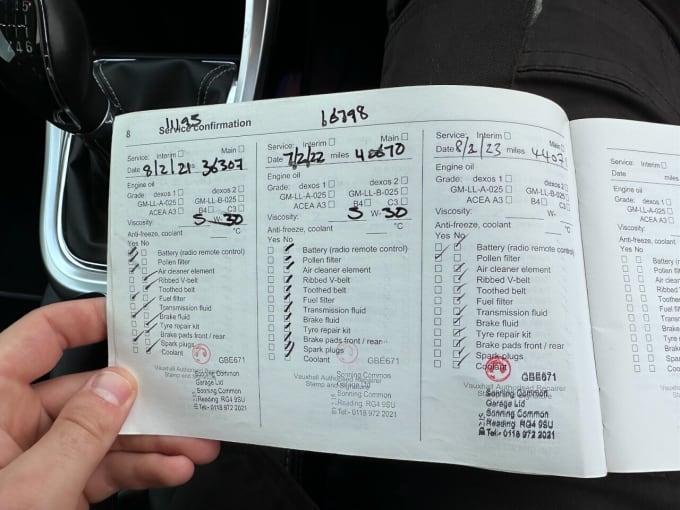 11195
16798
8
Service confirmation
Service: Interim
Main
Date 8/2/21 36307
Engine oil
Grade: dexos 1
dexos 2
GM-LL-A-025
GM-LL-B-025
ACEA A3
B4
C3
Viscosity: 5 W- 30
Anti-freeze, coolant °C
Yes No
Battery (radio remote control)
Pollen filter
Air cleaner element
Ribbed V-belt
Toothed belt
Fuel filter
Transmission fluid
Brake fluid
Tyre repair kit
Brake pads front / rear
Spark plugs
Coolant
GBE671
Vauxhall Authorised Repairer
Stamp and signature
Sonning Common
Garage Ltd
Sonning Common
Reading RG4 9SU
Tel:- 0118 972 2021
Service: Interim
Main
Date 7/2/22 miles 40670
Engine oil
Grade: dexos 1
dexos 2
GM-LL-A-025
GM-LL-B-025
ACEA A3
B4
C3
Viscosity: 5 W- 30
Anti-freeze, coolant °C
Yes No
Battery (radio remote control)
Pollen filter
Air cleaner element
Ribbed V-belt
Toothed belt
Fuel filter
Transmission fluid
Brake fluid
Tyre repair kit
Brake pads front / rear
Spark plugs
Coolant
GBE671
Vauxhall Authorised Repairer
Stamp and signature
Sonning Common
Garage Ltd
Sonning Common
Reading RG4 9SU
Tel:- 0118 972 2021
Service: Interim
Main
Date 8/2/23 miles 44071
Engine oil
Grade: dexos 1
dexos 2
GM-LL-A-025
GM-LL-B-025
ACEA A3
B4
C3
Viscosity: W-
Anti-freeze, coolant °C
Yes No
Battery (radio remote control)
Pollen filter
Air cleaner element
Ribbed V-belt
Toothed belt
Fuel filter
Transmission fluid
Brake fluid
Tyre repair kit
Brake pads front / rear
Spark plugs
Coolant
GBE671
Vauxhall Authorised Repairer
Sonning Common
Garage Ltd
Sonning Common
Reading RG4 9SU
Tel:- 0118 972 2021
Service: Interim
Date
Engine oil
Grade: dexos 1
GM-LL-A-025
ACEA A3
Viscosity:
Anti-freeze, coolant
Yes No
Battery
Pollen filter
Air cleaner
Ribbed V-
Toothed
Fuel filter
Brake
Tyre
Brake
Spark